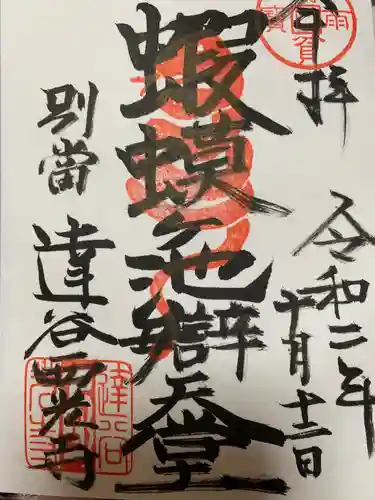 奉拝
令和二年
十月十二日
蝦蟆池辯天堂
別當
達谷西光寺